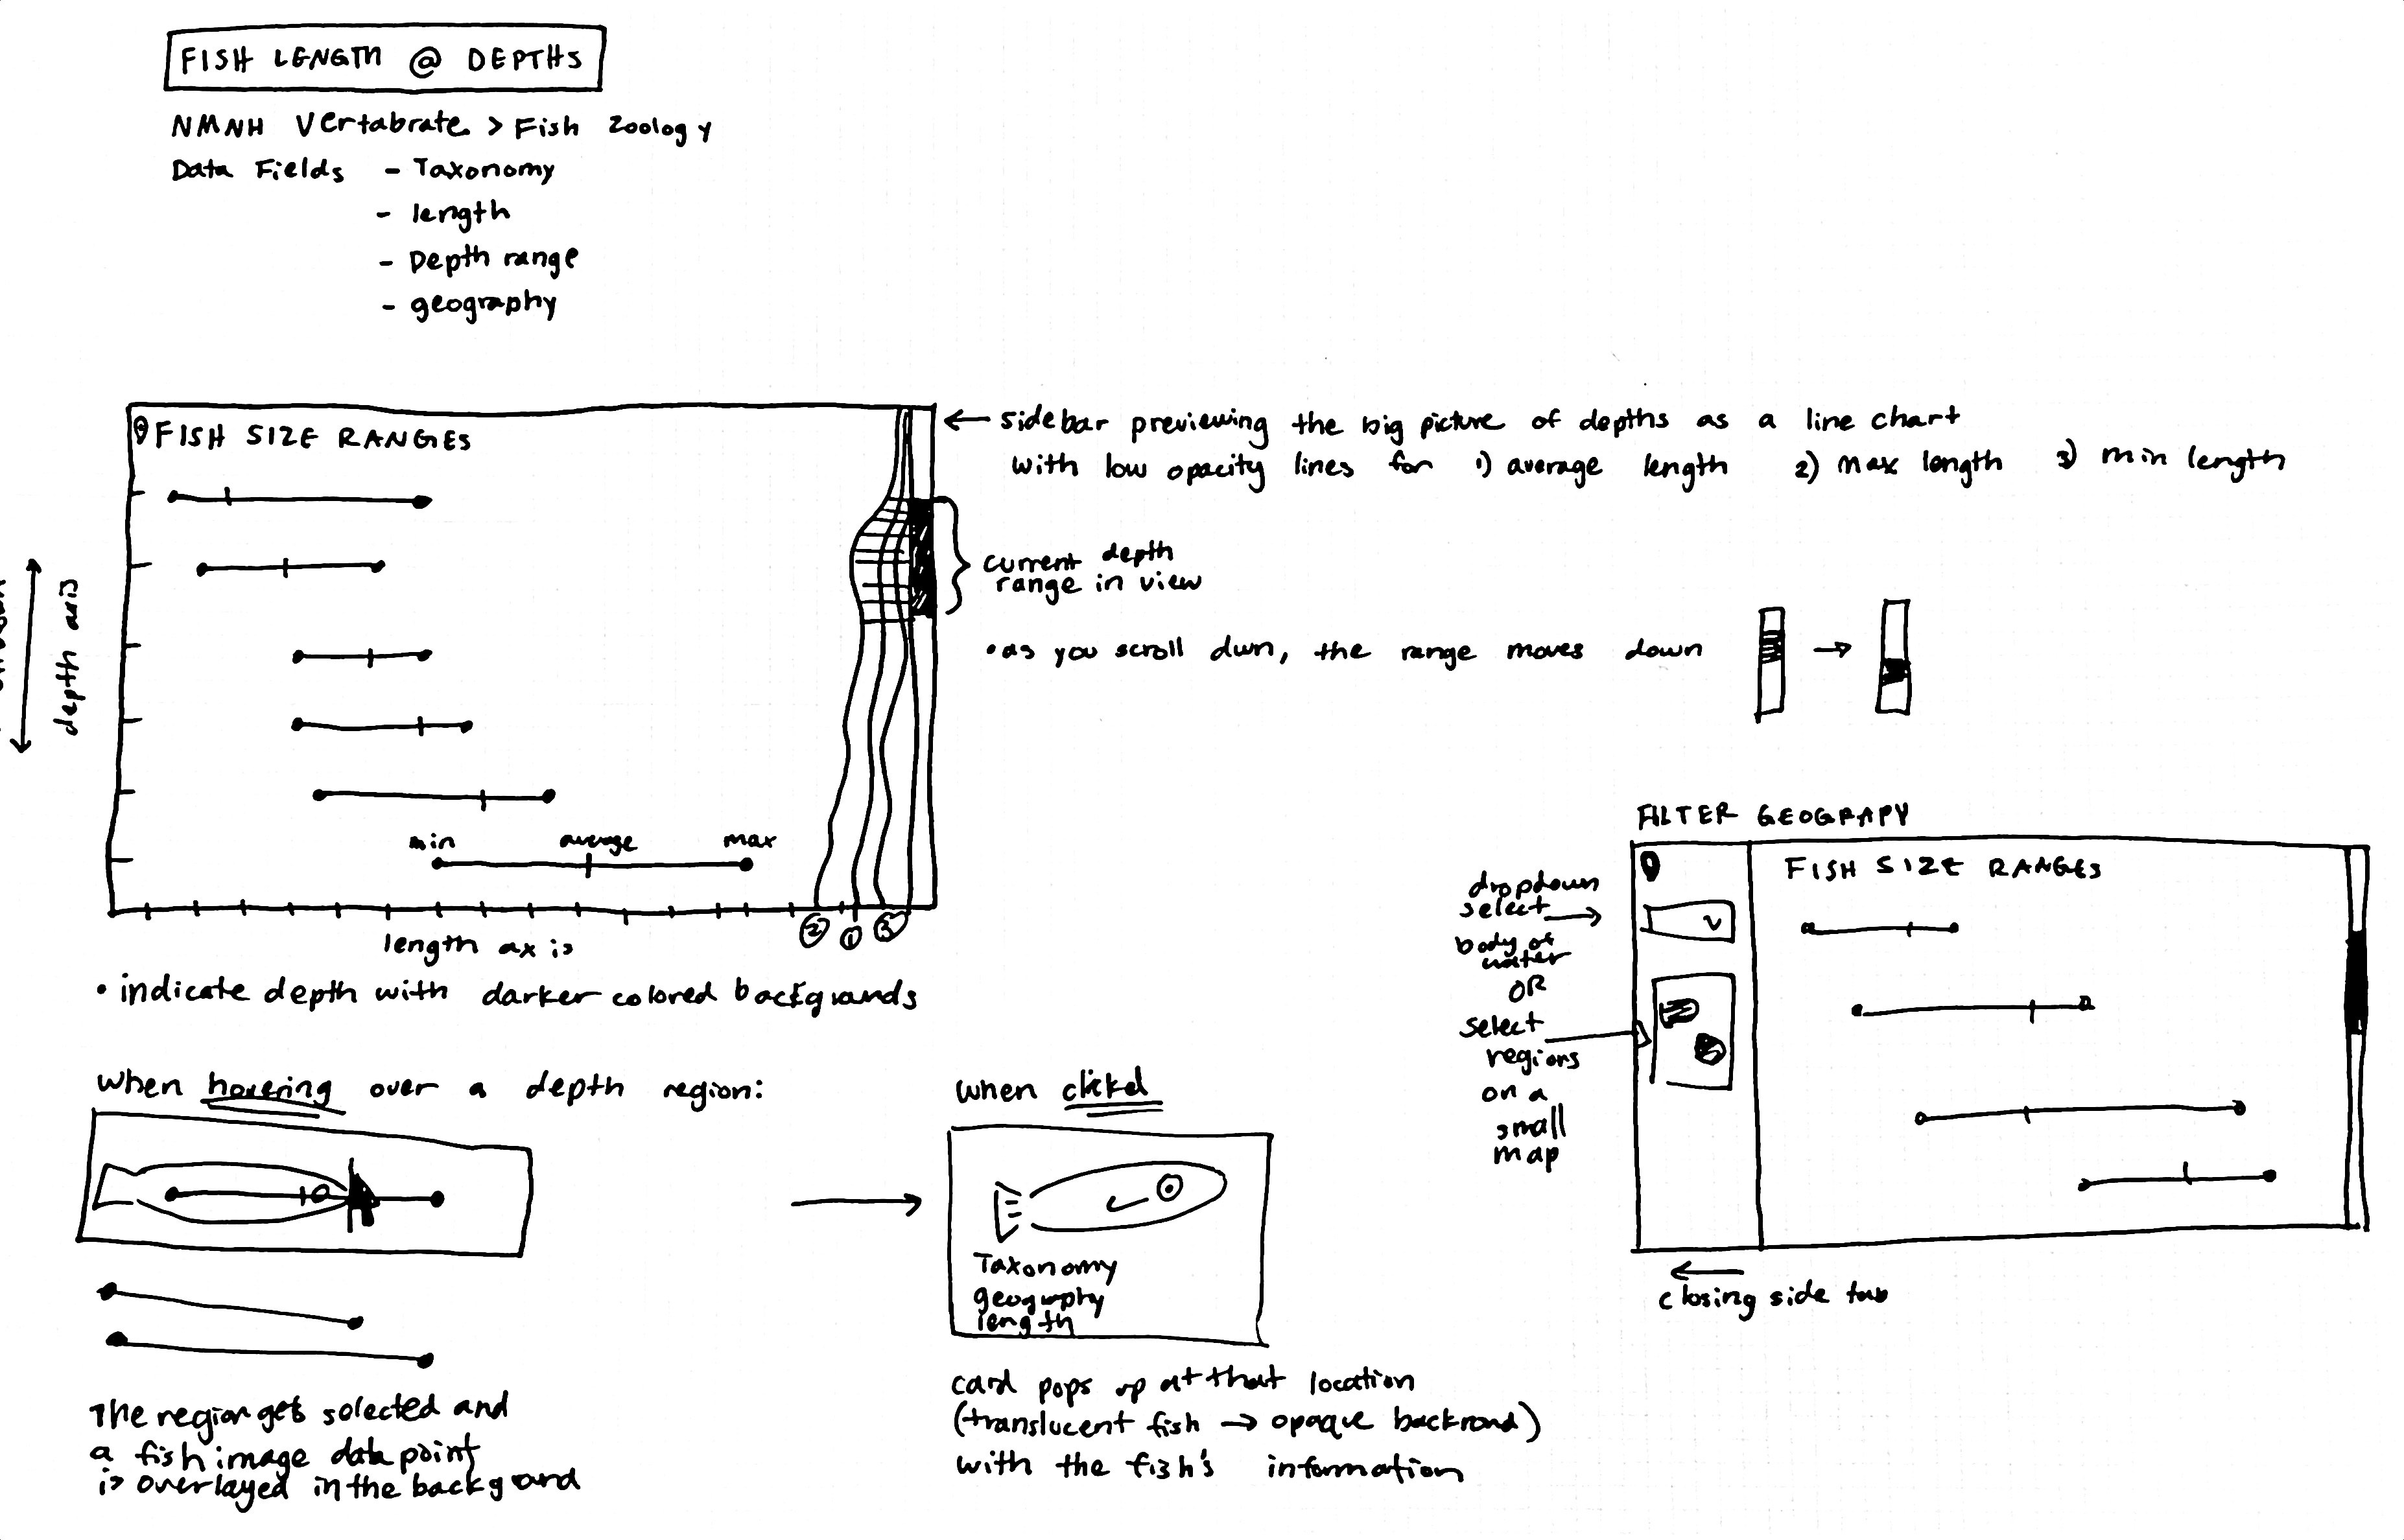 FISH LENGTH @ DEPTHS
NMNH Vertabrate > Fish Zoology
Data Fields - Taxonomy
- length
- Depth range
- geography
FISH SIZE RANGES
depth axis
min average max
length axis
2 1 3
← sidebar previewing the big picture of depths as a line chart
with low opacity lines for 1) average length 2) max length 3) min length
current depth
range in view
• as you scroll dwn, the range moves down →
• indicate depth with darker colored backgrounds
when hovering over a depth region:
The region gets selected and
a fish image data point
is overlayed in the background
when clicked
Taxonomy
geography
length
card pops up at that location
(translucent fish → opaque backrond)
with the fish's information
FILTER GEOGRAPY
FISH SIZE RANGES
dropdown
select
body of
water
OR
select
regions
on a
small
map
closing side tab